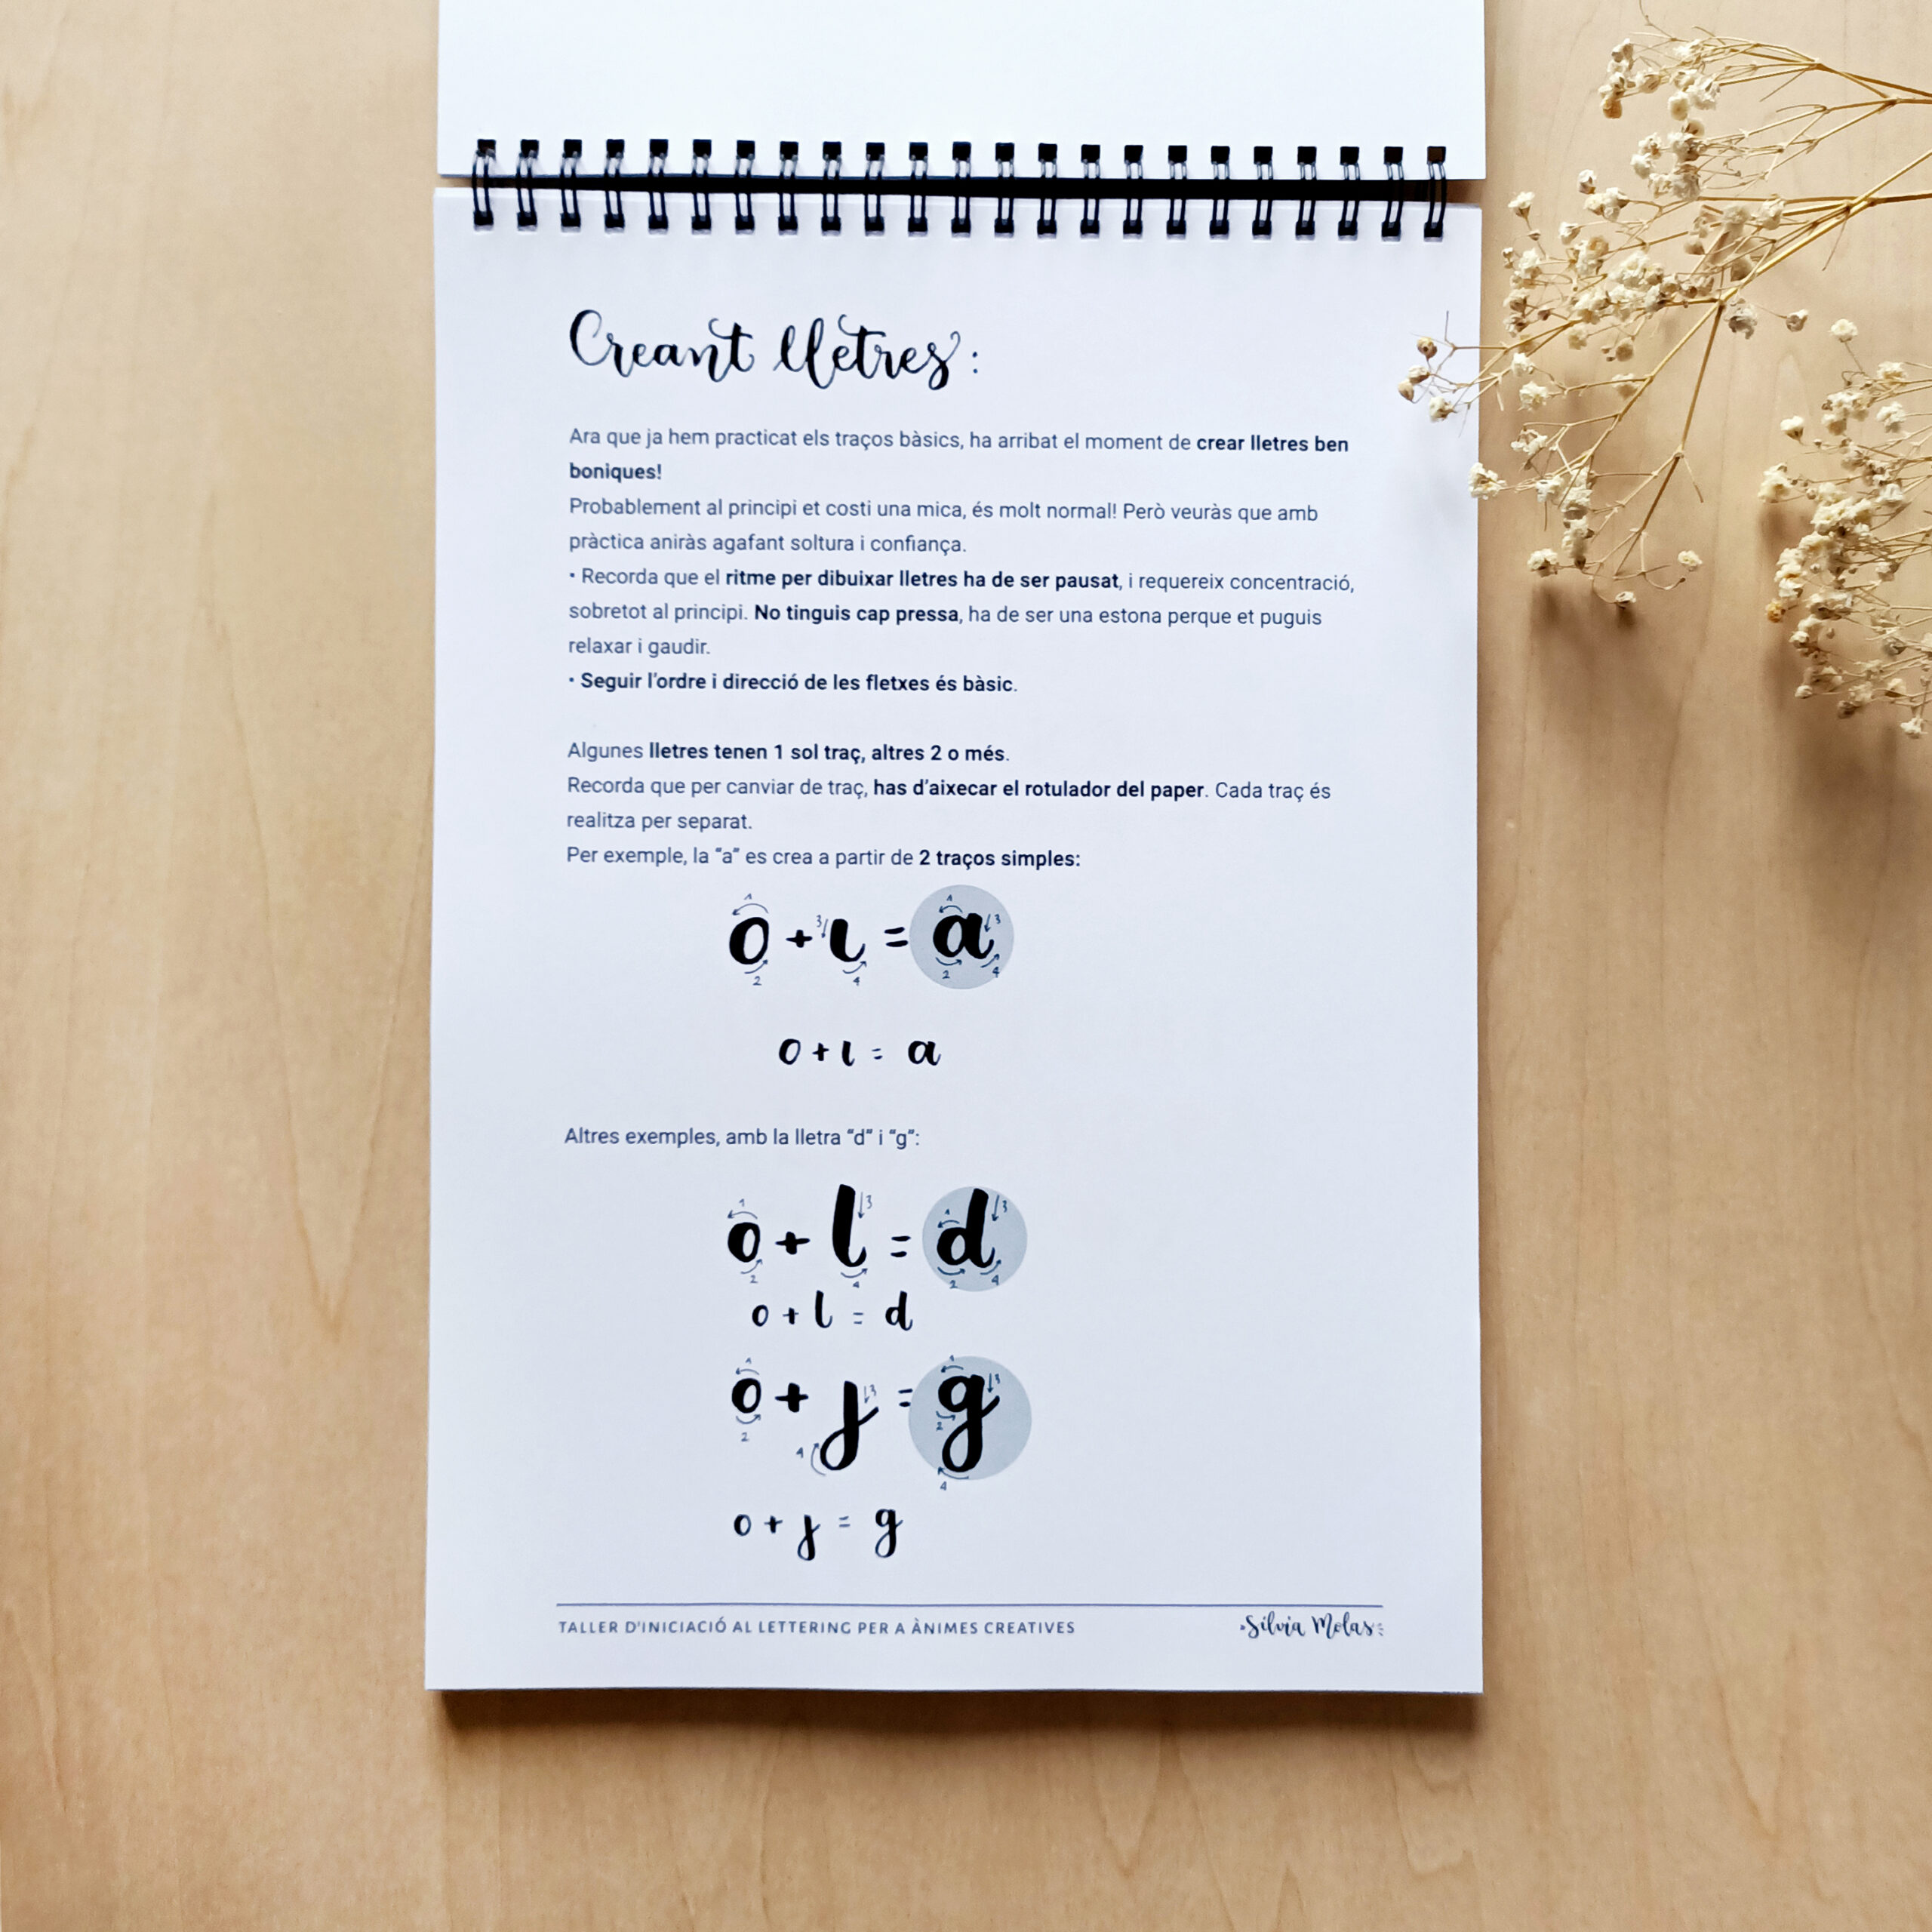 Creant lletres:
Ara que ja hem practicat els traços bàsics, ha arribat el moment de crear lletres ben
boniques!
Probablement al principi et costi una mica, és molt normal! Però veuràs que amb
pràctica aniràs agafant soltura i confiança.
• Recorda que el ritme per dibuixar lletres ha de ser pausat, i requereix concentració,
sobretot al principi. No tinguis cap pressa, ha de ser una estona perque et puguis
relaxar i gaudir.
• Seguir l'ordre i direcció de les fletxes és bàsic.
Algunes lletres tenen 1 sol traç, altres 2 o més.
Recorda que per canviar de traç, has d'aixecar el rotulador del paper. Cada traç és
realitza per separat.
Per exemple, la "a" es crea a partir de 2 traços simples:
1 3 1 3
o + ι = a
2 4 2 4
o + ι = a
Altres exemples, amb la lletra "d" i "g":
1 3 1 3
o + l = d
2 4 2 4
o + l = d
1 3 1 3
o + ȷ = g
2 4 2 4
o + ȷ = g
TALLER D'INICIACIÓ AL LETTERING PER A ÀNIMES CREATIVES
Silvia Molas